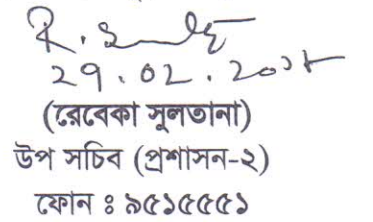 29.02.20১৮
(রেবেকা সুলতানা)
উপ সচিব (প্রশাসন-২)
ফোন ঃ ৯৫১৫৫৫১